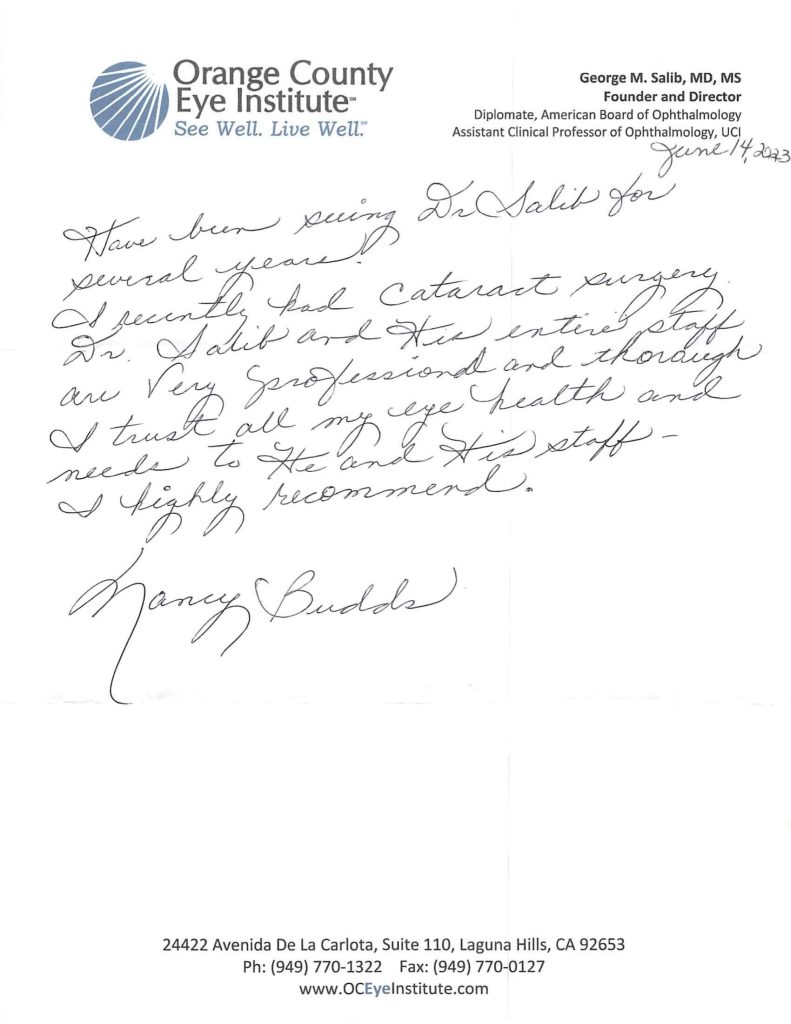 Orange County
Eye Institute℠
See Well. Live Well.℠
George M. Salib, MD, MS
Founder and Director
Diplomate, American Board of Ophthalmology
Assistant Clinical Professor of Ophthalmology, UCI
June 14, 2023
Have been seeing Dr Salib for
several years!
I recently had cataract surgery.
Dr. Salib and His entire staff
are Very professional and thorough
I trust all my eye health and
needs to He and His staff –
I highly recommend.
Nancy Budds
24422 Avenida De La Carlota, Suite 110, Laguna Hills, CA 92653
Ph: (949) 770-1322 Fax: (949) 770-0127
www.OCEyeInstitute.com